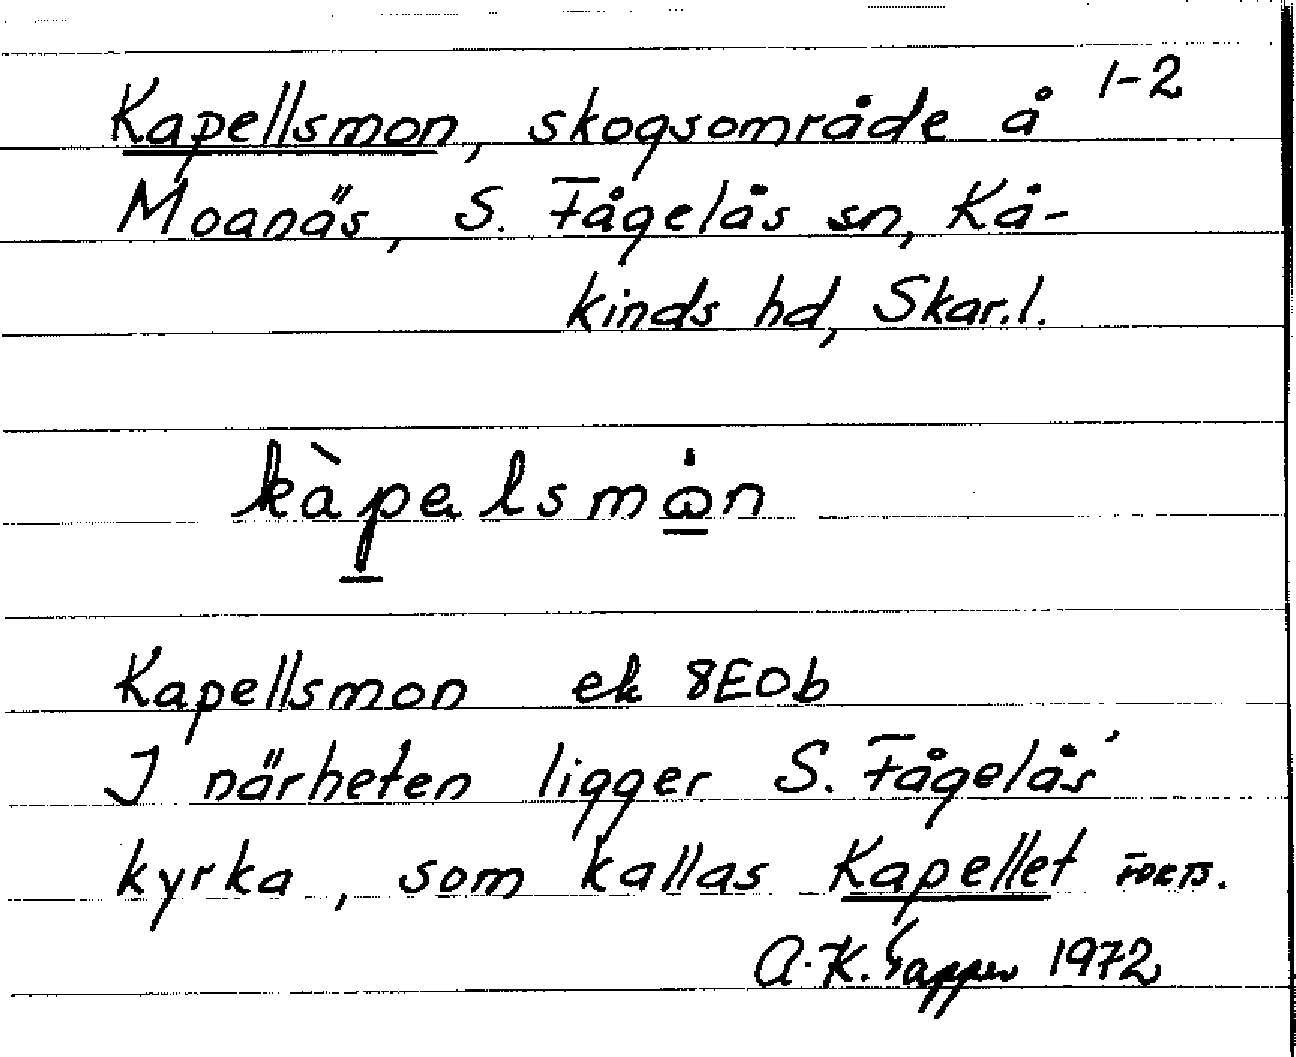 1-2
Kapellsmon, skogsområde å
Moanäs, S. Fågelås sn, Kå-
kinds hd, Skar.l.
kàpelsmȯn
Kapellsmon ek 8E0b
I närheten ligger S. Fågelås'
kyrka, som kallas Kapellet FORTS.
A.K. 1972